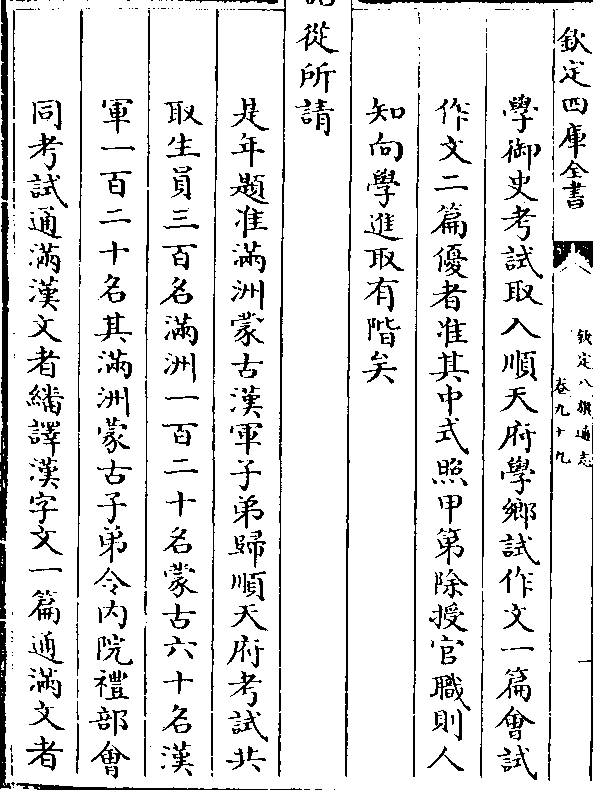 欽定四庫全書
欽定八旗通志
卷九十九
一
學御史考試取入順天府學鄉試作文一篇會試
作文二篇優者准其中式照甲第除授官職則人
知向學進取有階矣
從所請
是年題准滿洲蒙古漢軍子弟歸順天府考試共
取生員三百名滿洲一百二十名蒙古六十名漢
軍一百二十名其滿洲蒙古子弟令内院禮部會
同考試通滿漢文者繙譯漢字文一篇通滿文者